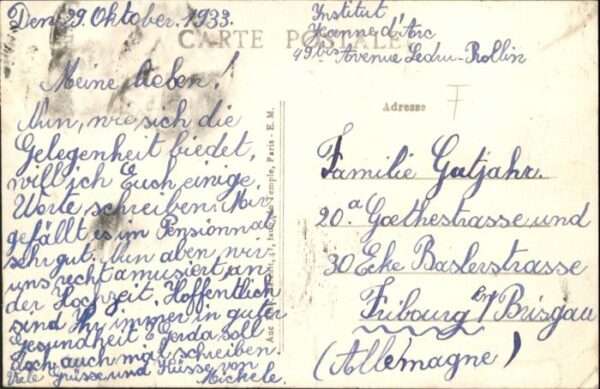 Den 29. Oktober. 1933.
CARTE POSTALE
Meine Lieben!
Nun, wo sich die
Gelegenheit biedet,
will ich Euch einige
Worte schreiben. Mir
gefällt es im Pensionnat
sehr gut. Nun aben wir
uns recht amusiert, an
der Hochzeit. Hoffentlich
sind Ihr immer in guter
Gesundheit. Gerda soll
doch auch mal schreiben.
Viele Grüsse und Küsse von
Michele.
Temple, Paris - E. M.
Institut
Jeanne d'Arc
49 bis Avenue Ledru-Rollin
Adresse
Familie Gutjahr.
20.a Goethestrasse und
30 Ecke Baslerstrasse
Fribourg i/Brisgau
(Allemagne)